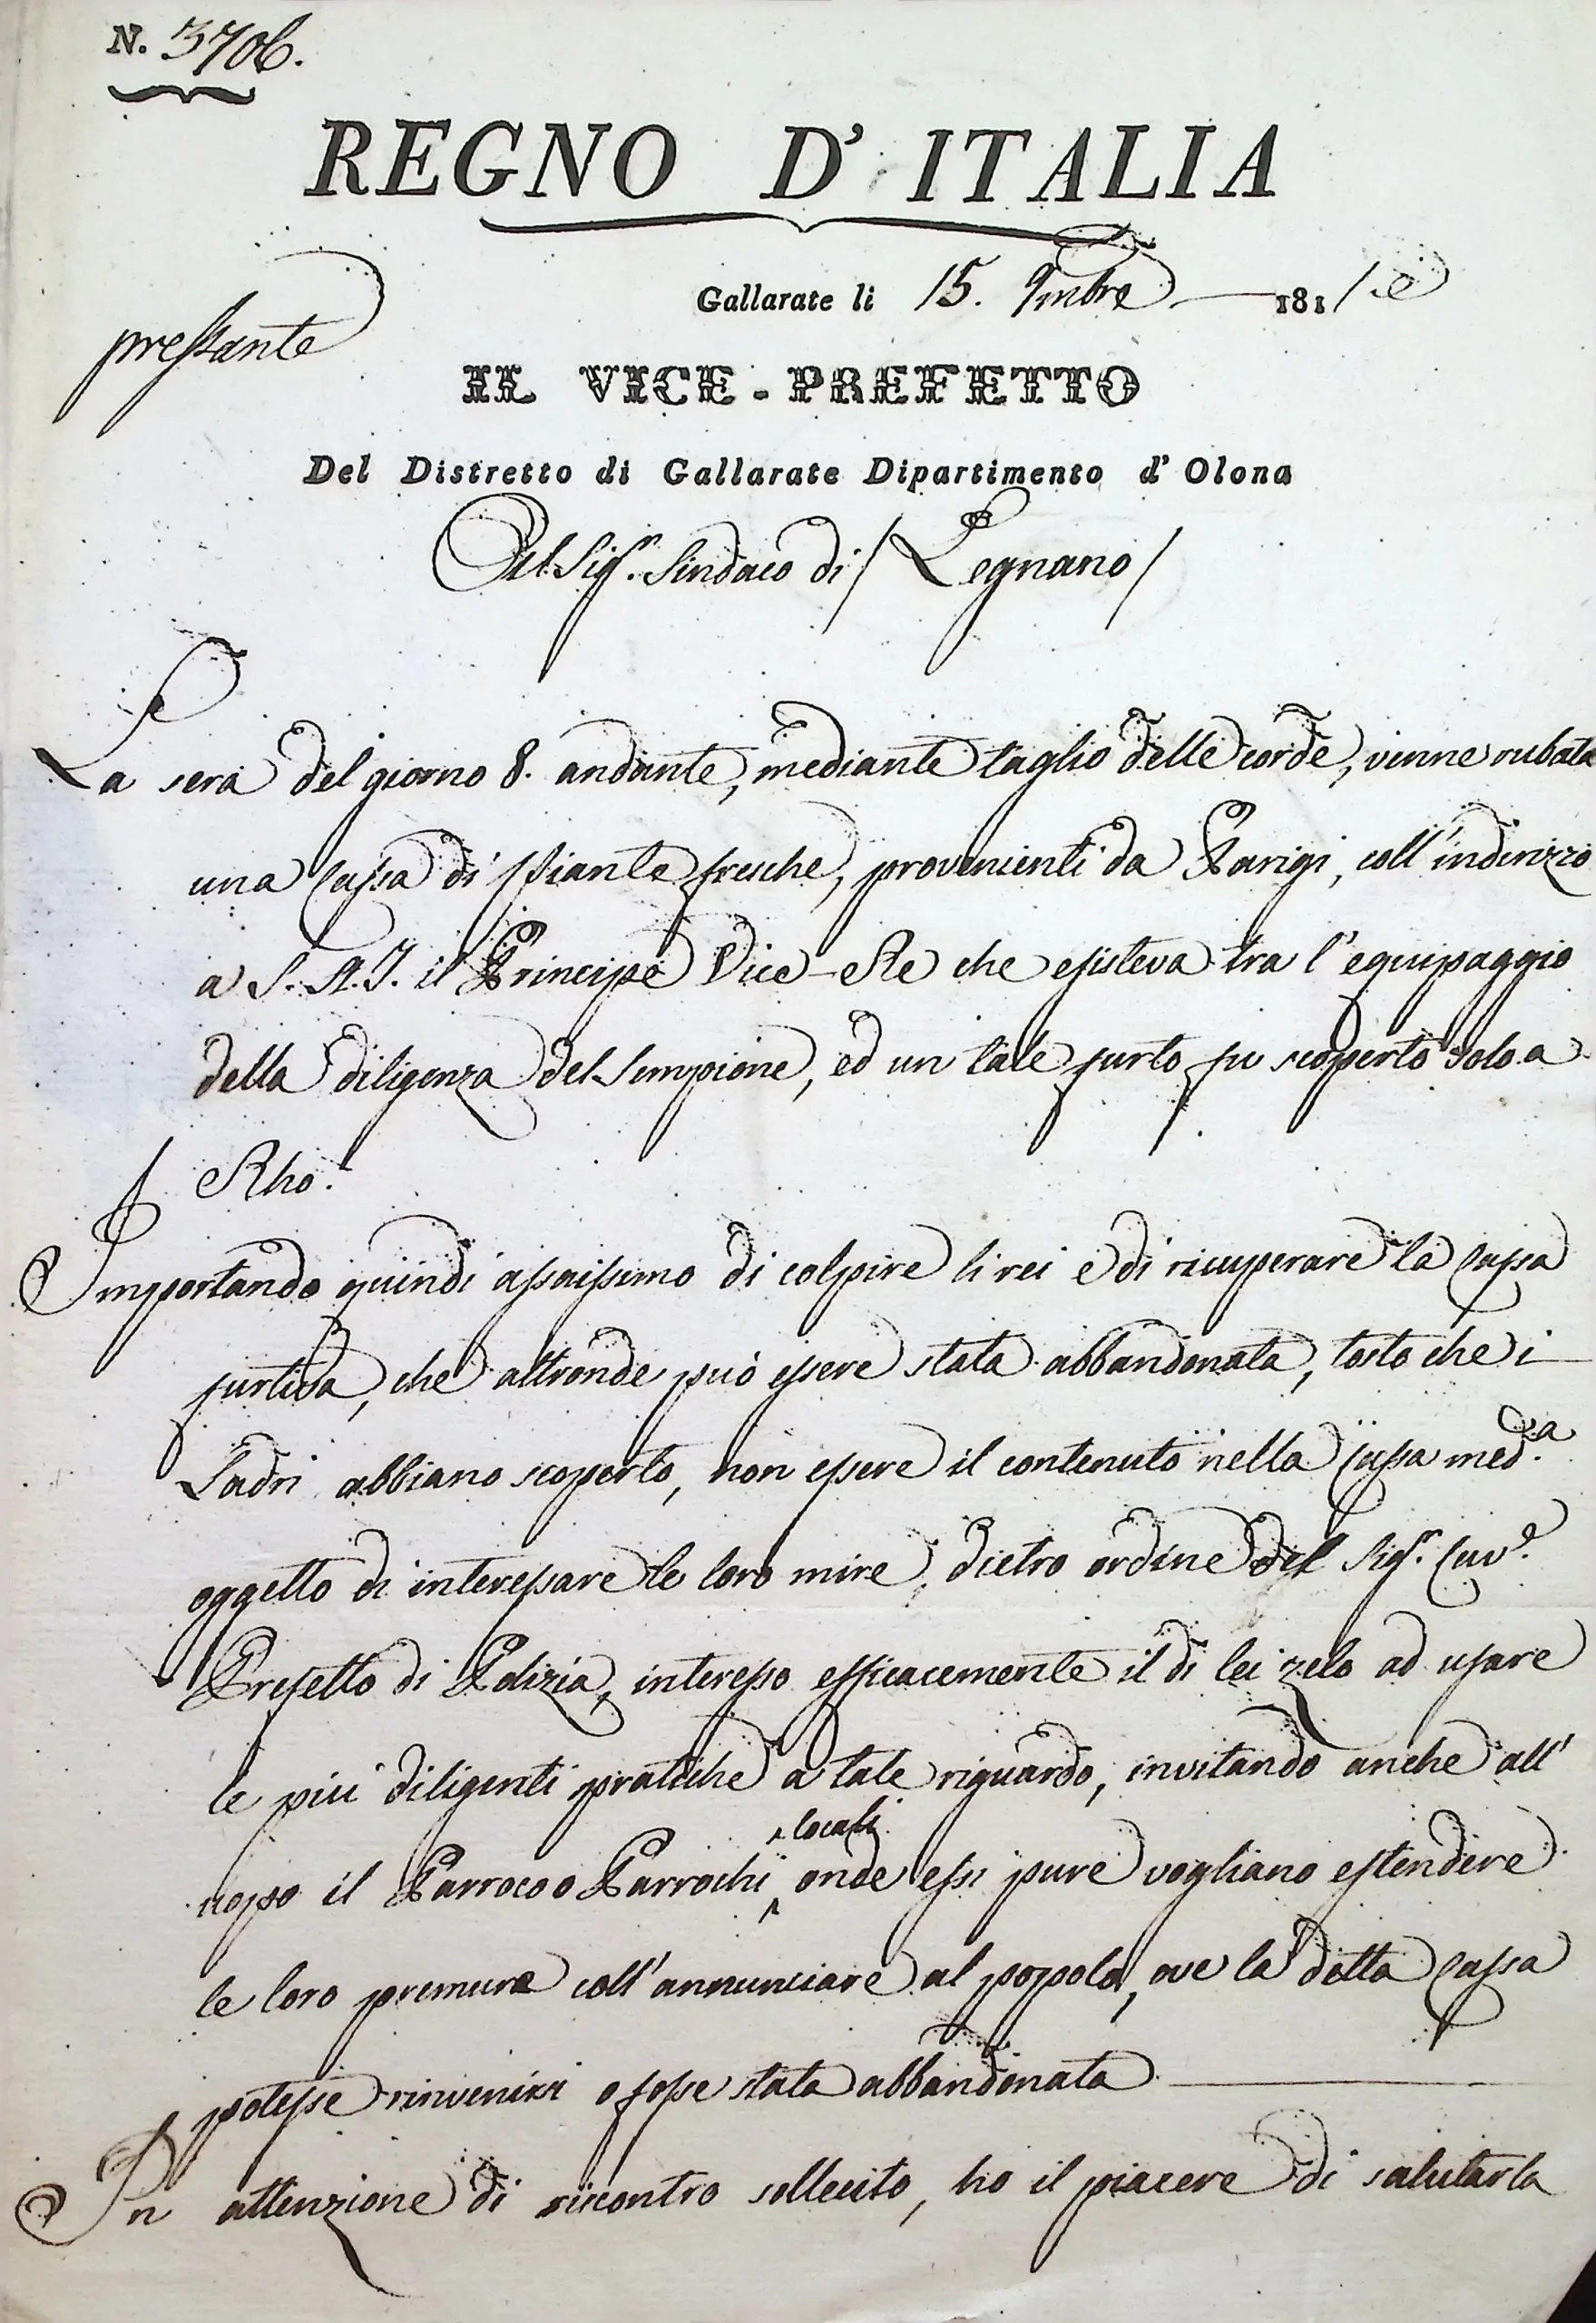 N. 3706.
REGNO D' ITALIA
Gallarate li 15. 9mbre 1811
pressante
IL VICE-PREFETTO
Del Distretto di Gallarate Dipartimento d' Olona
Al Sigr. Sindaco di / Legnano /
La sera del giorno 8. andante, mediante taglio delle corde, venne rubata
una Cassa di Piante fresche, provenienti da Parigi, coll'indirizzo
a S. A. I. il Principe Vice-Re che esisteva tra l'equipaggio
della diligenza del Sempione, ed un tale furto fu scoperto solo a
Rho.
Importando quindi assaissimo di colpire li rei e di ricuperare la Cassa
furtiva, che altronde può essere stata abbandonata, tosto che i
Ladri abbiano scoperto, non essere il contenuto nella Cassa med.a
oggetto di interessare le loro mire, dietro ordine del Sigr. Cav.e
Prefetto di Polizia, interesso efficacemente il di lei zelo ad usare
le più diligenti pratiche a tale riguardo, invitando anche all'
locali
uopo il Parroco o Parrochi onde essi pure vogliano estendere
le loro premure coll'annunciare al popolo, ove la detta Cassa
potesse rinvenirsi o fosse stata abbandonata
In attenzione di riscontro sollecito, ho il piacere di salutarla